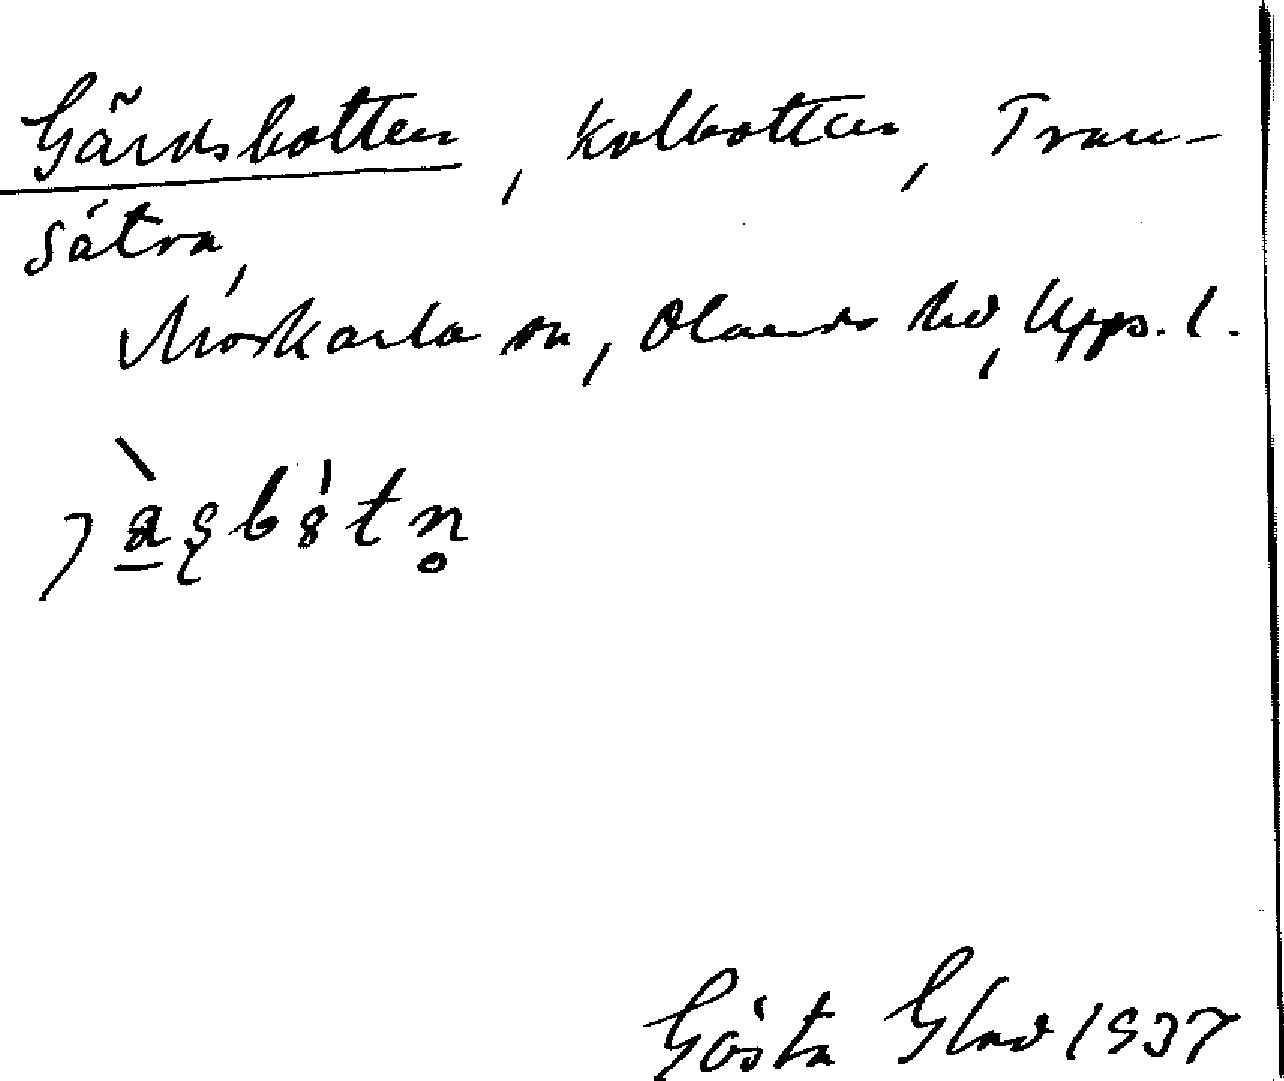 Gärdsbotten, kolbotten, Tran-
sätra,
Morkarla sn, Olands hd, Upps. l.
Gösta Glad 1937